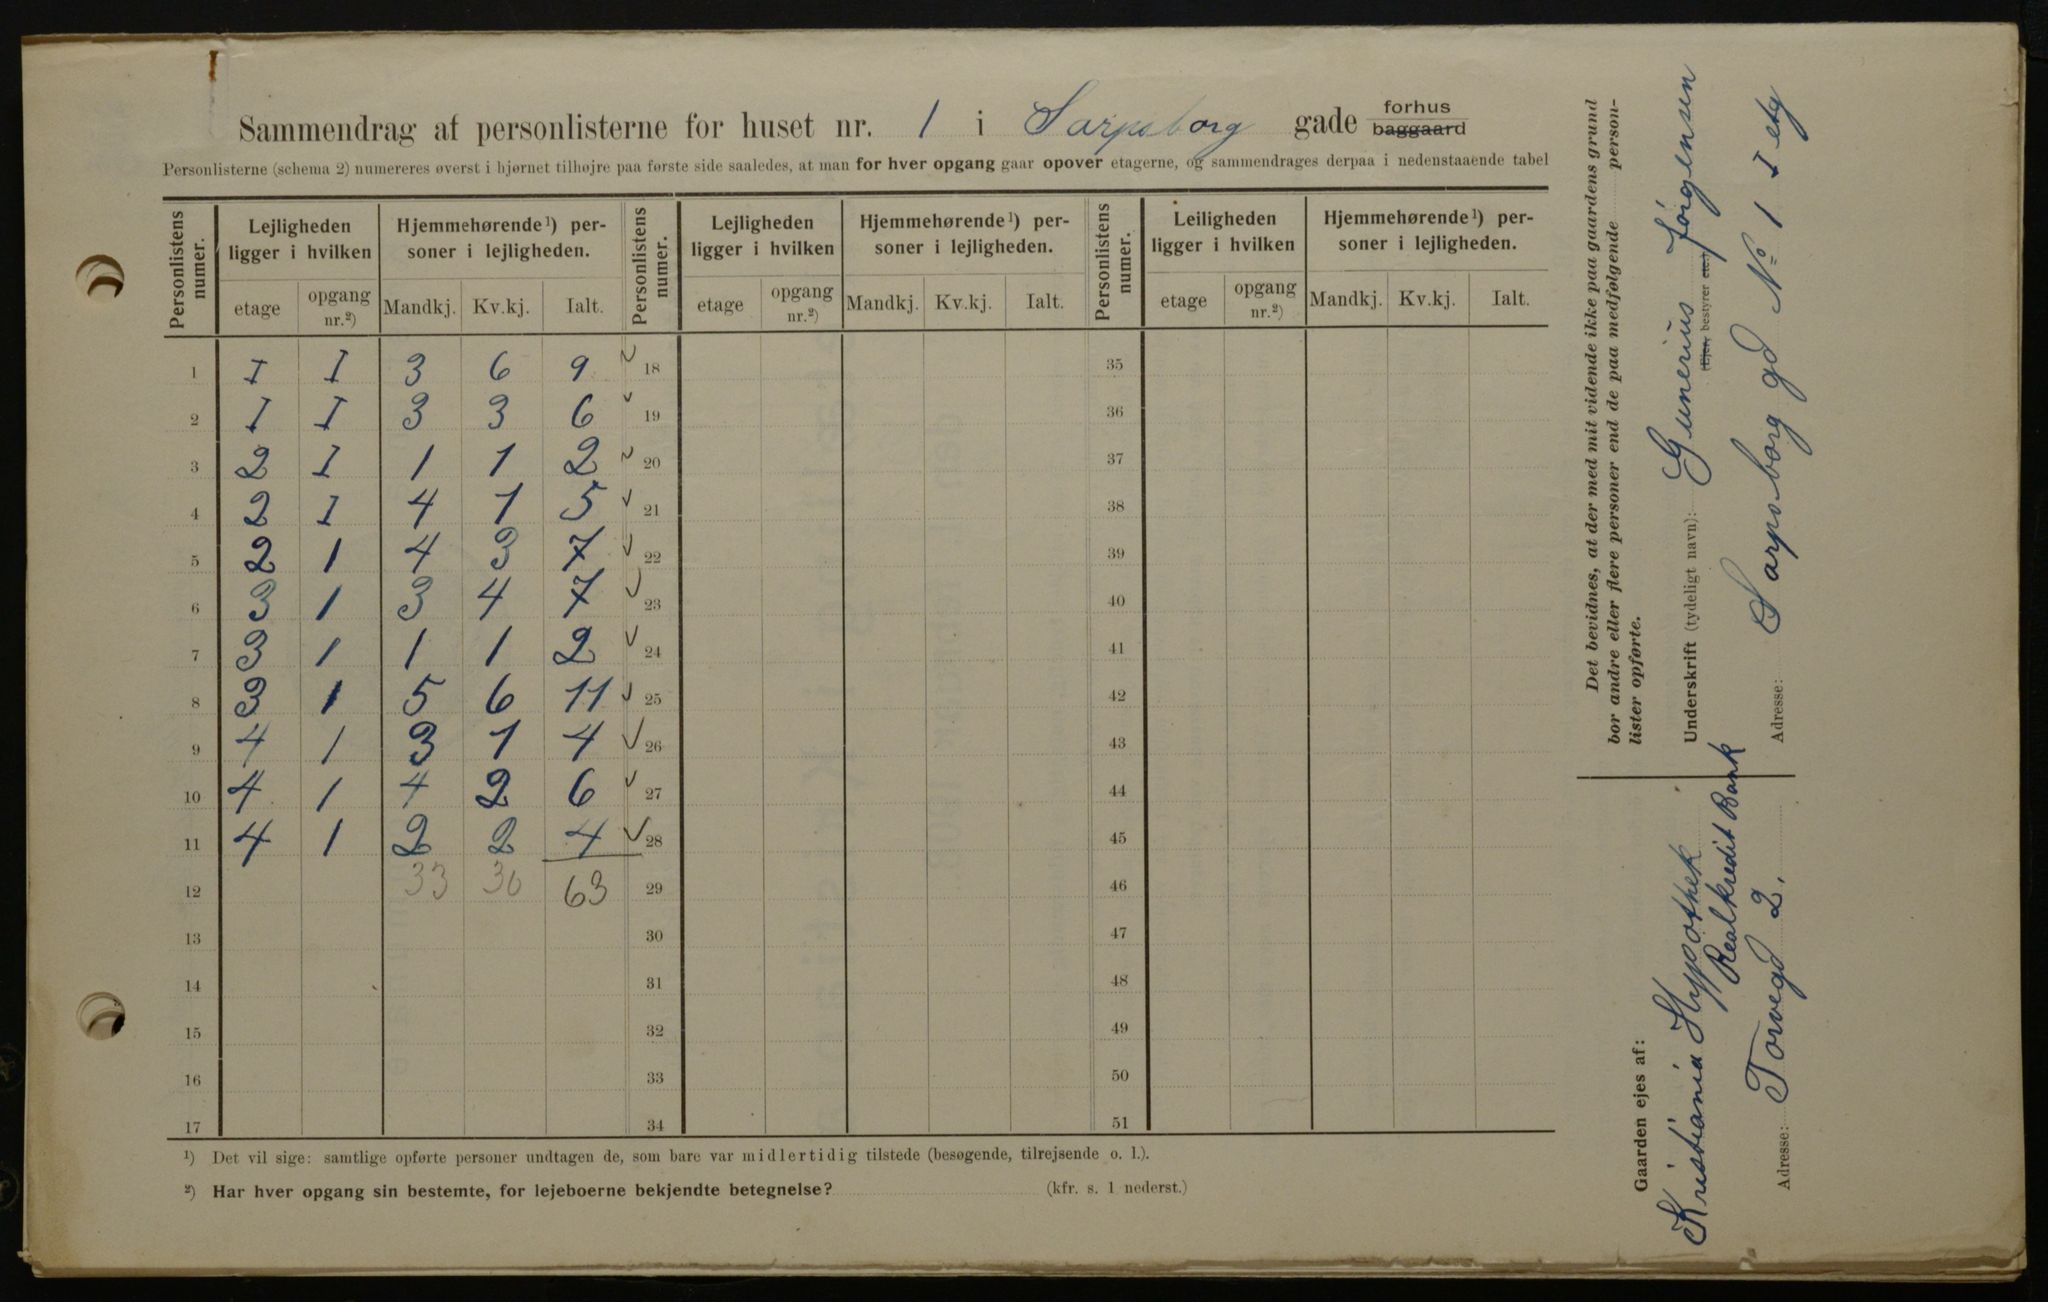 Sammendrag af personlisterne for huset nr. 1 i Sarpsborg gade forhus baggaard
Personlisterne (schema 2) numereres øverst i hjørnet tilhøjre paa første side saaledes, at man for hver opgang gaar opover etagerne, og sammendrages derpaa i nedenstaaende tabel
Personlistens numer. Lejligheden ligger i hvilken Hjemmehørende¹) personer i lejligheden. Personlistens numer. Lejligheden ligger i hvilken Hjemmehørende¹) personer i lejligheden. Personlistens numer. Leiligheden ligger i hvilken Hjemmehørende¹) personer i lejligheden.
etage opgang nr.²) Mandkj. Kv.kj. Ialt. etage opgang nr.²) Mandkj. Kv.kj. Ialt. etage opgang nr.²) Mandkj. Kv.kj. Ialt.
1 I I 3 6 9 ✓ 18 35
2 I I 3 3 6 ✓ 19 36
3 2 I 1 1 2 ✓ 20 37
4 2 I 4 1 5 ✓ 21 38
5 2 1 4 3 7 ✓ 22 39
6 3 1 3 4 7 ✓ 23 40
7 3 1 1 1 2 ✓ 24 41
8 3 1 5 6 11 ✓ 25 42
9 4 1 3 1 4 ✓ 26 43
10 4 1 4 2 6 ✓ 27 44
11 4 1 2 2 4 ✓ 28 45
12 33 30 63 29 46
13 30 47
14 31 48
15 32 49
16 33 50
17 34 51
¹) Det vil sige: samtlige opførte personer undtagen de, som bare var midlertidig tilstede (besøgende, tilrejsende o. l.).
²) Har hver opgang sin bestemte, for lejeboerne bekjendte betegnelse? (kfr. s. 1 nederst.)
Det bevidnes, at der med mit vidende ikke paa gaardens grund
bor andre eller flere personer end de paa medfølgende person-
lister opførte.
Underskrift (tydeligt navn): Gunerius Jørgensen
(Ejer, bestyrer etc.)
Adresse: Sarpsborg gd No 1 I etg
Gaarden ejes af:
Kristiania Hypothek
Realkredit Bank
Adresse: Torvegd 2.